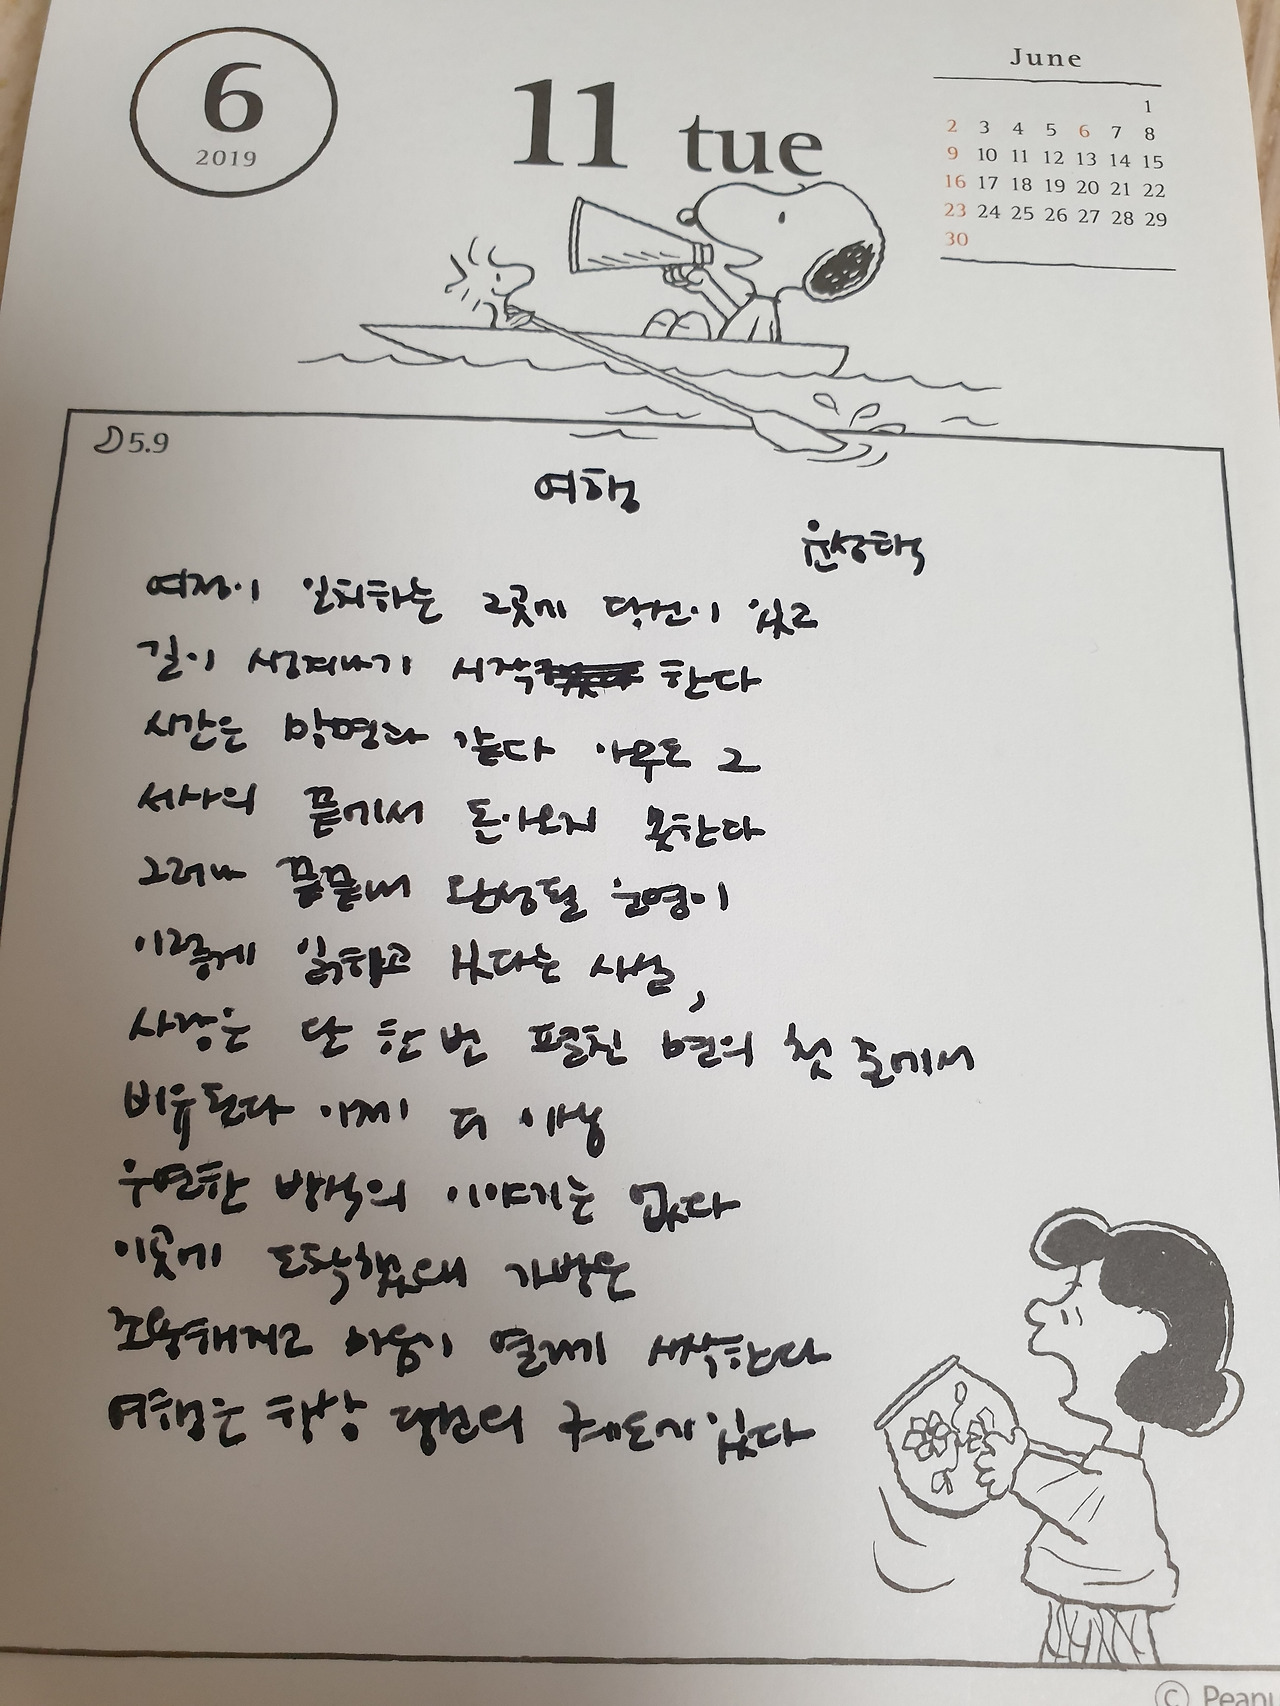 6
2019
11 tue
June
1
2 3 4 5 6 7 8
9 10 11 12 13 14 15
16 17 18 19 20 21 22
23 24 25 26 27 28 29
30
5.9
여행
윤성택
여정이 일치하는 그곳에 당신이 있고
길이 선해내기 시작 한다
시간은 망명과 같다 아무도 그
서사의 끝에서 돌아오지 못한다
그러나 끝끝내 완성될 운명이
이렇게 읽히고 있다는 사실,
사랑은 단 한 번 펼친 면의 첫 줄에서
비유된다 이제 더 이상
우연한 방식의 이야기는 없다
이곳에 도착했으니 가방은
조용해지고 마음이 열리기 시작한다
여행은 항상 당신의 궤도에 있다
© Peanu